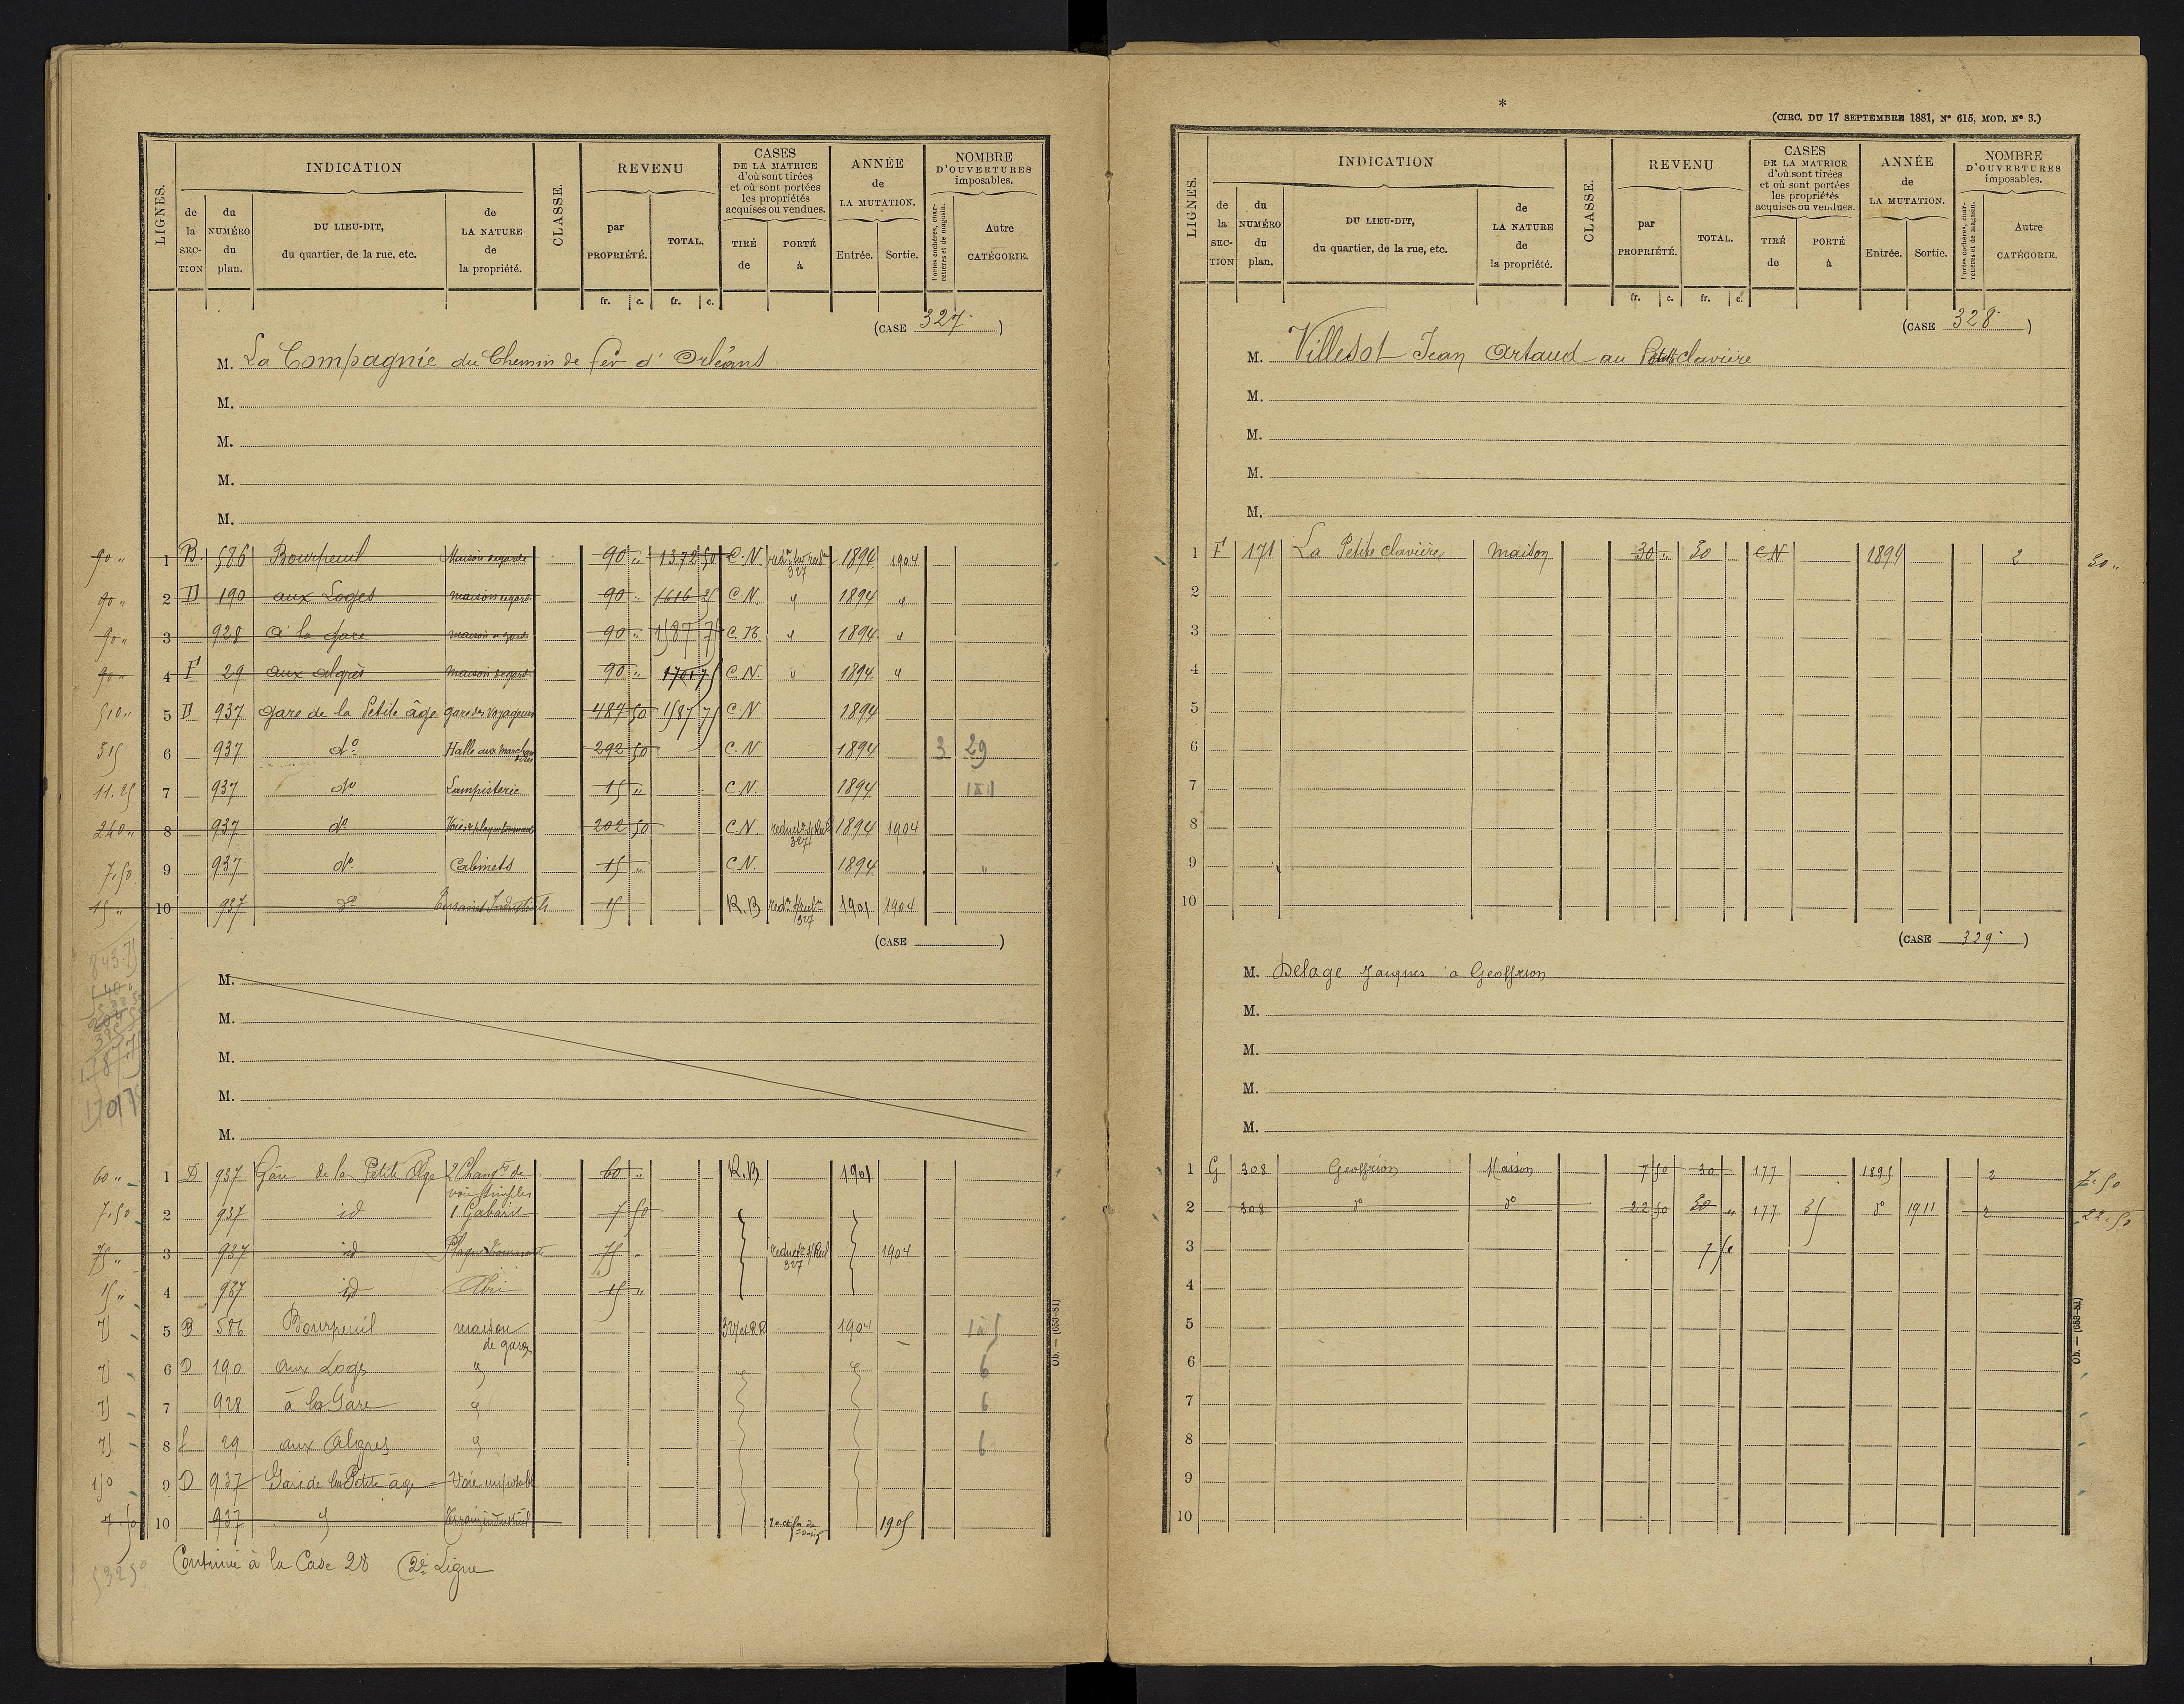 LIGNES.
INDICATION
de la SECTION
du NUMÉRO du plan.
DU LIEU-DIT, du quartier, de la rue, etc.
de LA NATURE de la propriété.
CLASSE.
REVENU
par PROPRIÉTÉ.
TOTAL.
CASES DE LA MATRICE d'où sont tirées et où sont portées les propriétés acquises ou vendues.
TIRÉ de
PORTÉ à
ANNÉE de LA MUTATION.
Entrée.
Sortie.
NOMBRE D'OUVERTURES imposables.
Portes cochères, charretières et de magasin.
Autre CATÉGORIE.
fr. c. fr. c.
(CASE 327.)
M. La Compagnie du Chemin de fer d'Orléans
M.
M.
M.
M.
90 " 1 B. 586 Bourpeuil Maison de garde 90 " 1372 50 C.N. 327 1894 1904
90 " 2 D 190 aux Loges maison de garde 90 " 1616 25 C.N. " 1894 "
90 " 3 928 à la gare maison de garde 90 " 1587 75 C.N. " 1894 "
90 " 4 F 29 aux algrès maison de garde 90 " 1701 75 C.N. " 1894 "
510 " 5 D 937 gare de la Petite âge gare des voyageurs 487 50 1587 75 C.N 1894
315 6 937 do Halle aux marchandises 292 50 C.N 1894 3 29
11.25 7 937 do Lampisterie 15 " C.N. 1894 1 à 11
240 " 8 937 do Voies & plaques tournantes 202 50 C.N. reducton s/ Rev 327 1894 1904
7.50 9 937 do Cabinets 15 " C.N. 1894 "
15 " 10 937 do Terrains Industriels 15 R.B 327 1901 1904
843.75
(CASE )
M.
M.
M.
M.
M.
1701 75
60 " 1 D 937 Gare de la Petite Age 2 Changts de voie simples 60 " R.B 1901
7.50 2 937 id 1 Gabarit 7 50
75 " 3 937 id Plaque Tournante 75 " reducton s/ Rev 327 1904
15 " 4 937 id Abri 15 "
75 5 B 586 Bourpeuil maison de garde 327 et RR 1904 1 à 5
75 6 D 190 aux Loges " 6
75 7 928 à la Gare " 6
75 8 f 29 aux Algres " 6
150 9 D 937 Gare de la Petite âge Voie imposable
7.50 10 937 " Terrain industriel 1905
532 50
Continué à la Case 28 (2e Ligne
*
(CIRC. DU 17 SEPTEMBRE 1881, N° 615, MOD. N° 3.)
LIGNES.
INDICATION
de la SECTION
du NUMÉRO du plan.
DU LIEU-DIT, du quartier, de la rue, etc.
de LA NATURE de la propriété.
CLASSE.
REVENU
par PROPRIÉTÉ.
TOTAL.
CASES DE LA MATRICE d'où sont tirées et où sont portées les propriétés acquises ou vendues.
TIRÉ de
PORTÉ à
ANNÉE de LA MUTATION.
Entrée.
Sortie.
NOMBRE D'OUVERTURES imposables.
Portes cochères, charretières et de magasin.
Autre CATÉGORIE.
fr. c. fr. c.
(CASE 328.)
M. Villesot Jean Artaud au Petit clavière
M.
M.
M.
M.
1 F 171 La Petite clavière maison 30 " 30 C N 1894 2 30 "
2
3
4
5
6
7
8
9
10
(CASE 329.)
M. Delage Jacques a Geoffrion
M.
M.
M.
M.
1 G 308 Geoffrion Maison 7 50 30 177 1895 2 7.50
2 308 do do 22 50 30 " 177 35 do 1911 2 22.50
3 7 50
4
5
6
7
8
9
10
Ob. — (653-81)
Ob. — (653-81)